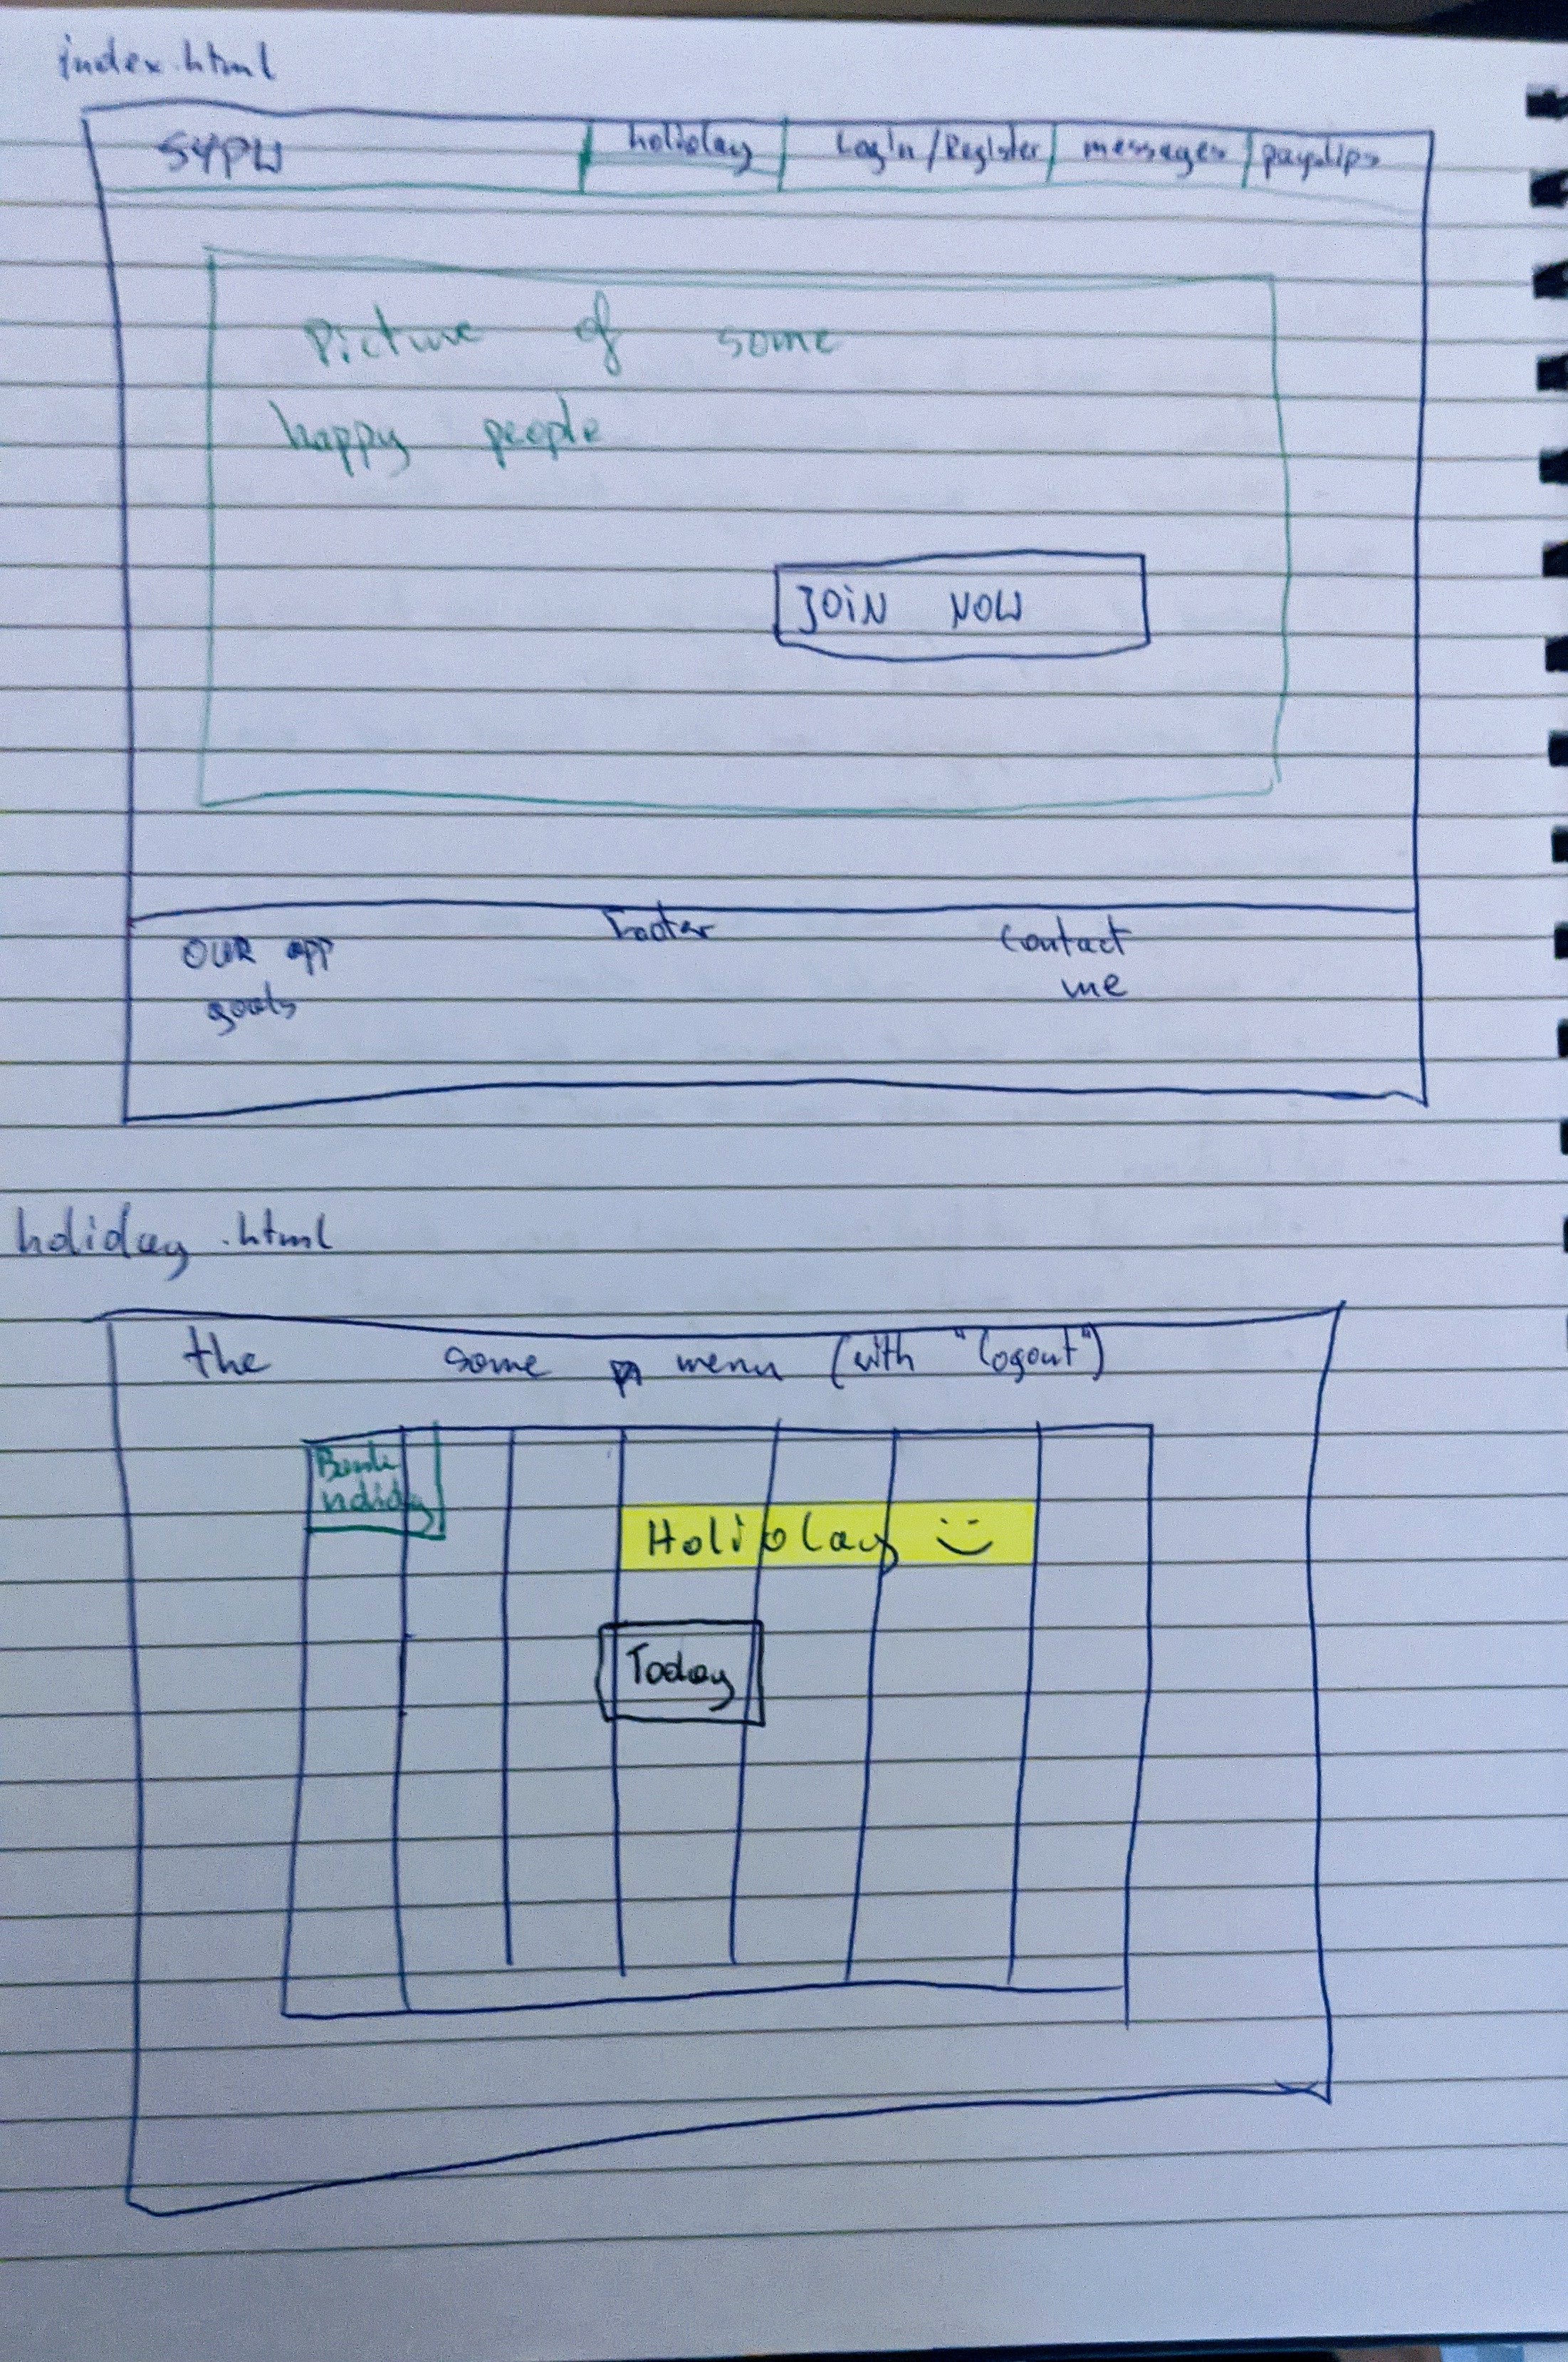 index.html
SYPW holiday Login/Register messages payslips
Picture of some
happy people
JOIN NOW
Footer
OUR app contact
goals me
holiday.html
the same menu (with "logout")
Bank
holiday
Holiday :)
Today